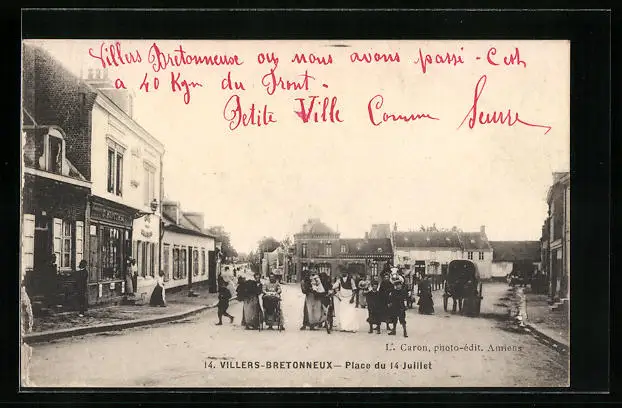 Villers Bretonneuse ou nous avons passé - C'est
a 40 Kgm du Front -
Petite Ville Comme Seurre
L. Caron, photo-édit. Amiens
14. VILLERS-BRETONNEUX — Place du 14 Juillet